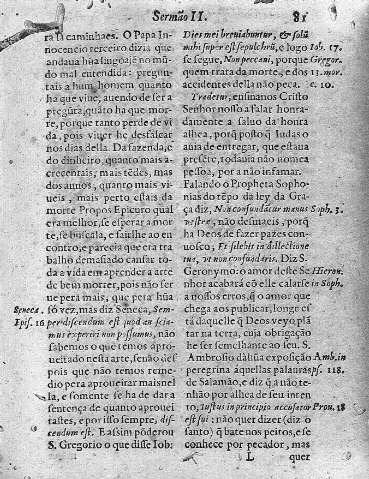 Sermão II. 81
ra o caminhaes. O Papa In-
nocencio terceiro dizia que
andaua hũa lingoajē no mũ-
do mal entendida: pregun-
tais a hum homem quanto
ha que viue, auendo de ser a
pregũta, quãto ha que mor-
re, porque tanto perde de vi
da, pois viuer he desfalcar
nos dias della. Da fazenda, e
do dinheiro, quanto mais a-
crecentais, mais tēdes, mas
dos annos, quanto mais vi-
ueis, mais perto estais da
morte Propos Epicuro qual
era melhor, se esperar a mor
te, se buscala, e sairlhe ao en-
contro, e parecia que era tra
balho demasiado cansar to-
da a vida em aprender a arte
de bem morrer, pois não ser
ue pera mais, que pera hũa
Seneca. só vez, mas diz Seneca, Sem-
Epis. 26 per discendum est quod an sci-
mus experiri non possumus, não
sabemos o que temos apro-
ueitado nesta arte, senão des
pois que não temos reme-
dio pera aproueitar mais nel
la, e somente se ha de dar a
sentença de quanto aprouei
tastes, e por isso sempre, dis-
cendum est. E assim põderou
S. Gregorio o que disse Iob:
Dies mei breuiabuntur, & solũ
mihi super est sepulchrũ, e logo Iob. 17.
se segue, Non peccaui, porque Gregor.
quem trata da morte, e dos 13. mor.
accidentes della não peca. c. 10.
Tradetur, ensinanos Cristo
Senhor nosso a falar honra-
damente a saluo da honra
alhea, porq̃ posto q̃ Iudas o
auia de entregar, que estaua
presēte, todauia não nomea
pessoa, por a não infamar.
Falando o Propheta Sopho-
nias do tēpo da ley da Gra-
ça diz, Non confundātur manus Soph. 3.
vestræ, não desmaeis, porq̃
ha Deos de fazer pazes con-
uosco, Et silebit in dillectione
tua, vt non confundaris. Diz S.
Geronymo: o amor deste Se Hieron.
nhor acabará cō elle calarse in Soph.
a nossos erros, q̃ o amor que
chega aos publicar, longe es
tá daquelle q̃ Deos veyo plã
tar na terra, cuja obrigação
he ser semelhante ao seu. S.
Ambrosio dá hũa exposição Amb. in
peregrina áquellas palauras ps. 118.
de Salamão, e diz q̃ a não te-
nhão por alhea de seu inten
to, Iustus in principio accusator Prou. 18
est sui: não quer dizer (diz o
santo) q̃ bate nos peitos, e se
conhece por pecador, mas
L quer